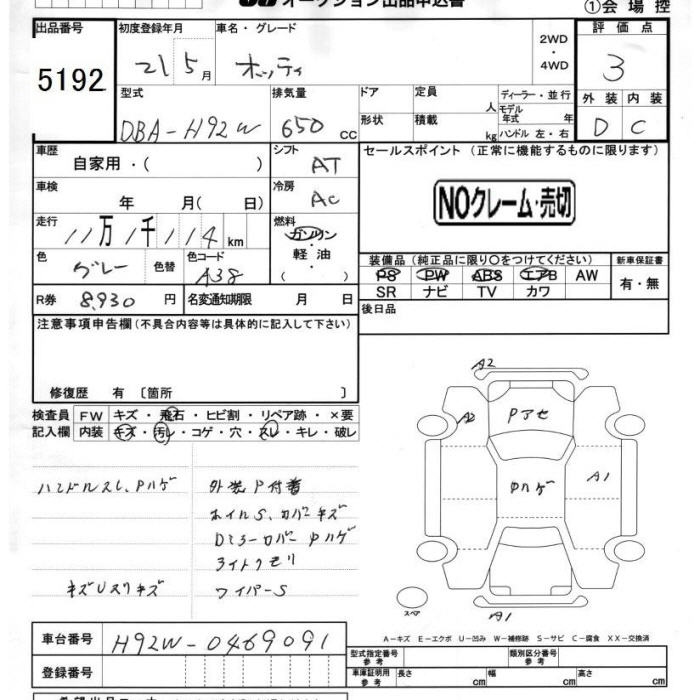 オークション出品申込書
①会場控
出品番号
初度登録年月
車名・グレード
2WD
・
4WD
評価点
5192
21 5月
オッティ
3
型式
排気量
ドア
定員
人
ディーラー・並行
モデル
年式 年
外装 内装
DBA-H92W
650 cc
形状
積載
kg
ハンドル 左・右
D C
車歴
自家用・( )
シフト
AT
セールスポイント (正常に機能するものに限ります)
車検
年 月( 日)
冷房
AC
NOクレーム・売切
走行
11万1千114km
燃料
ガソリン
・
軽油
・
( )
色
グレー
色替
色コード
A38
装備品 (純正品に限り〇をつけてください)
新車保証書
PS PW ABS エアB AW
SR ナビ TV カワ
有・無
R券 8,930 円
名変通知期限 月 日
後日品
注意事項申告欄(不具合内容等は具体的に記入して下さい)
修復歴 有〔箇所 〕
検査員
記入欄
FW キズ・飛石・ヒビ割・リペア跡・×要
内装 キズ・汚レ・コゲ・穴・スレ・キレ・破レ
A2
Pアセ
A2
A1
ハンドルスレ、Pハゲ
外装P付着
ホイルS、カバーキズ
Dミラーカバー
ライトクモリ
ワイパーS
スペア
A1
A-キズ E-エクボ U-凹み W-補修跡 S-サビ C-腐食 XX-交換済
車台番号
H92W-0469091
型式指定番号
参考
類別区分番号
参考
登録番号
車庫証明用
参考
長さ cm 幅 cm 高さ cm